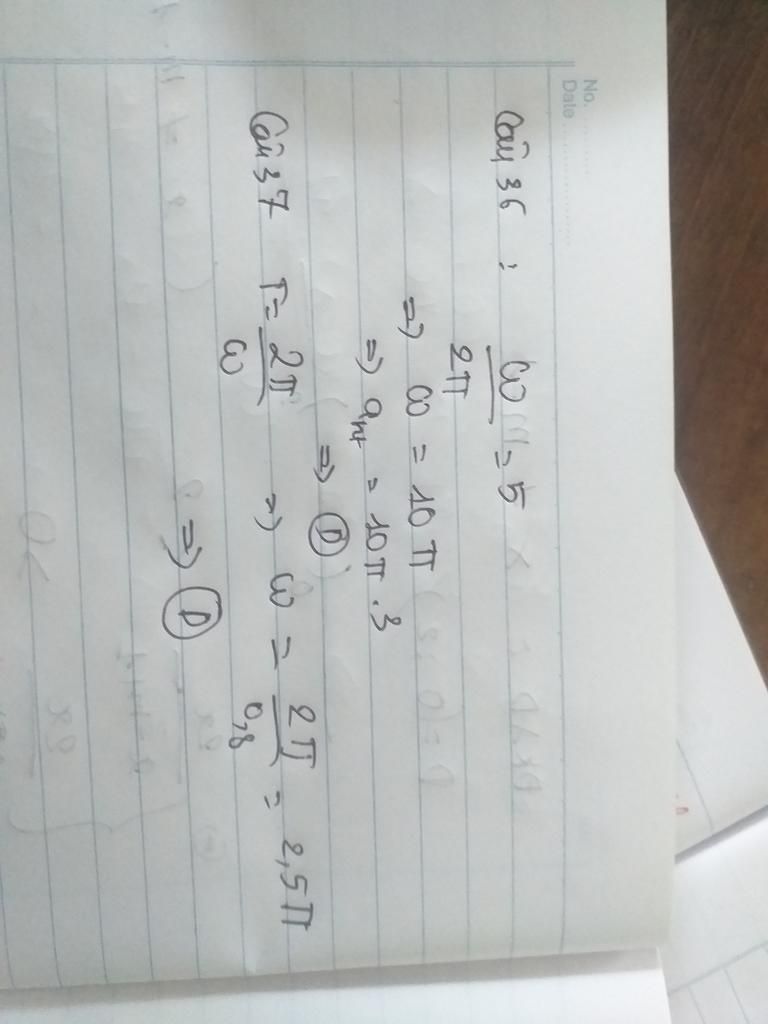 No. ............
Date ......................
Câu 36 : ω/2π = 5
=) ω = 10π
=) aht = 10π . 3
=) Ⓓ
Câu 37 T = 2π/ω =) ω = 2π/0,8 = 2,5π
=) Ⓓ